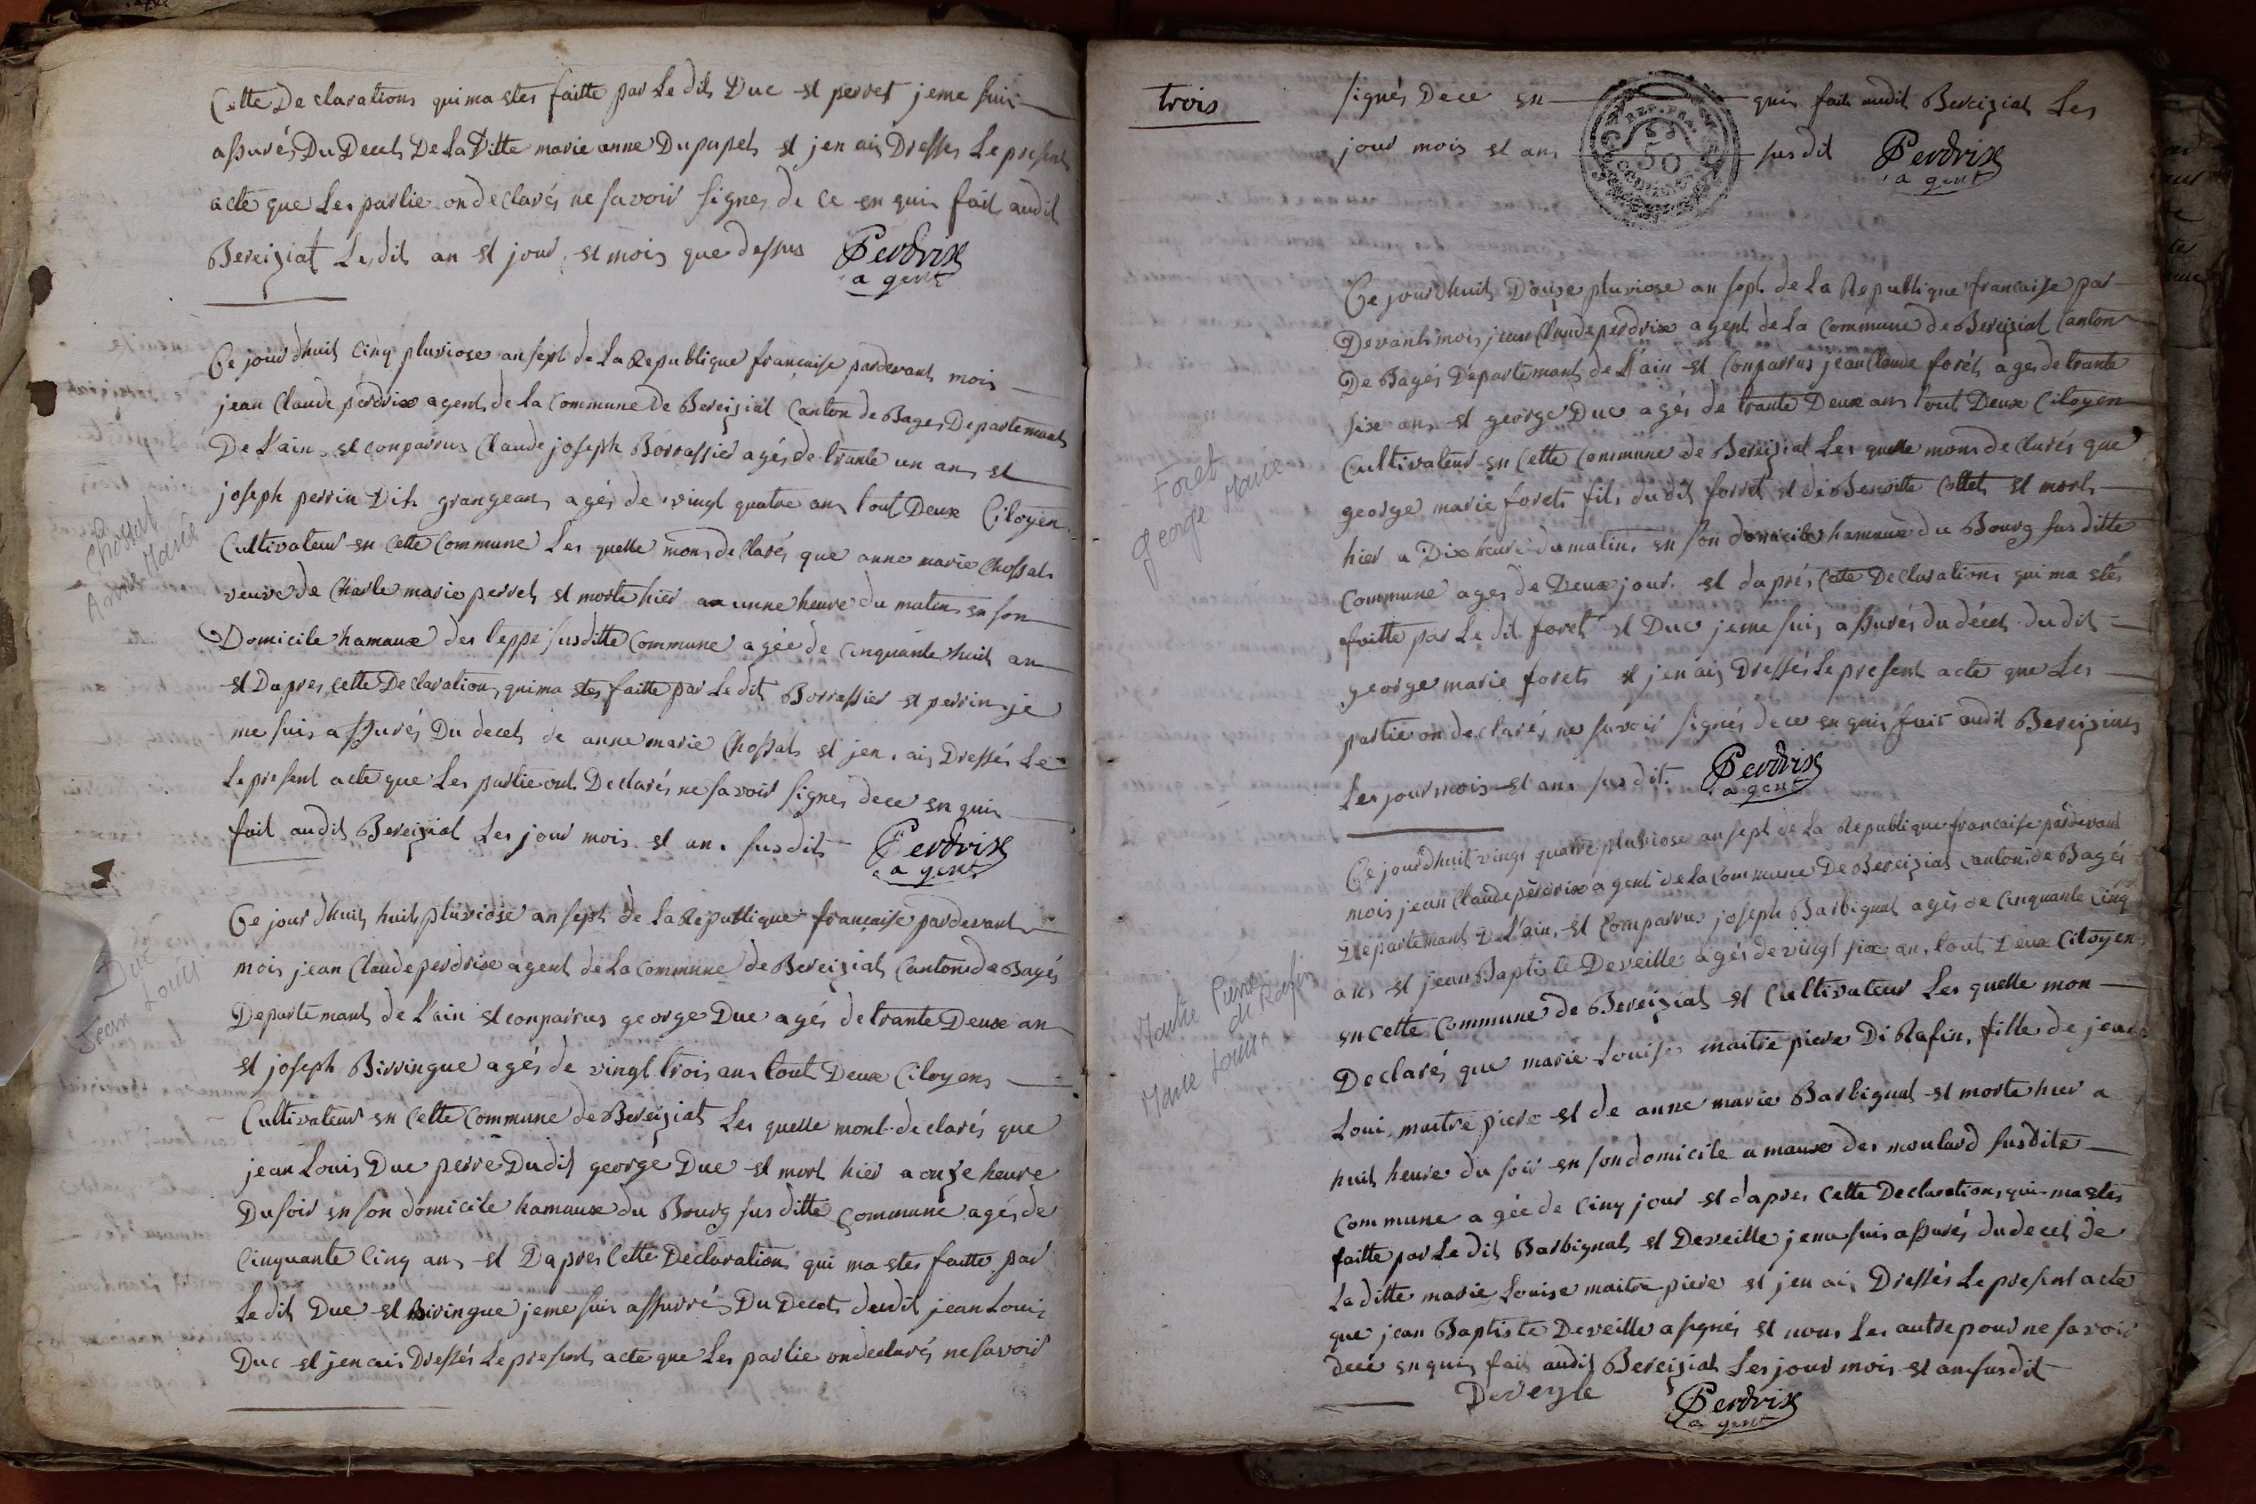 Cette Declarations qui ma etes faitte par Le dit Duc et perret je me suis
assurés Du Decet De La Ditte marie anne Dupupet et jen ais Dresses Le present
acte que Les partie on declarés ne savoir signes de ce en quis fait audit
Bereiziat Lesdit an et jour et mois que dessus Perdrix
agent
Ce jourdhuit Cinq pluviose an sept de La Republique francaise pardevant mois
jean Claude perdrix agent de La Commune de Bereiziat Canton de Bages Departemant
De L'ain et conparrus Claude joseph Borrassier agés de trante un ans et
joseph perrin Dit grangean agés de vingt quatre ans tout Deux Citoyen
Cultivateur en Cette Commune Les quelle mons declarés que anne marie Chossat
veuve de Charle marie perret et morte hier a unne heure du matin en son
Domicile hamaux des teppe susditte Commune agée de cinquante huit an
et Dapres cette Declarations qui ma etes faitte par Le dit Borrassier et perrin je
me suis assurés Du decet de anne marie Chossat et jen ais Dressés Le
Le present acte que Les partie ont Declarés ne savoir signes dece en quis
fait audit Bereiziat Les jour mois et ans susdits Perdrix
agent
Chossat
Anne Marie
Ce jourdhuit huit pluviose an sept de La Republique francaise pardevant
mois jean Claude perdrix agent de La Commune de Bereiziat Canton de Bagés
Departemant de L'ain et conparrus george Duc agés de trante Deux an
et joseph Birringue agés de vingt trois ans tout Deux Citoyens
Cultivateur en Cette Commune de Bereiziat Les quelle mont declarés que
jean Louis Duc perre Dudit george Duc et mort hier a onze heure
Du soir en son domicile hamaux du Bourg susditte Commune agés de
Cinquante Cinq ans et Dapres Cette Declarations qui ma etes faitte par
Le dit Duc et Biringue je me suis assurrés Du Decet dudit jean Louis
Duc et jen ais Dressés Le present acte que Les partie on declarés ne savoir
Duc
Jean Louis
trois
signés Dece en quis fait audit Bereiziat Les
jour mois et ans susdit Perdrix
agent
REP. FRA.
50
Ce jourdhuit Douze pluviose an sept de La Republique francaise par
Devant mois jean Claude perdrix agent de La Commune de Bereiziat Canton
De Bagés Departemant de L'ain et Conparrus jean Claude forêt ages de trante
six ans et george Duc agés de trante Deux ans tout Deux Citoyen
Cultivateur en Cette Commune de Bereiziat Les quelle mons declarés que
george marie foret fils dudit forret et de Benoitte Collet et mort
hier a Dix heure du matin en son domicile hamaux du Bourg susditte
Commune ages de Deux jour et daprés Cette Declarations qui ma etés
faitte par Le dit foret et Duc je me suis assurés du décet dudit
george marie foret et jen ais Dressés Le present acte que Les
partie on declarés ne savoir signés dece en quis fait audit Bereiziat
Les jour mois et ans susdit Perdrix
agent
Foret
George Marie
Ce jourdhuit vingt quatre pluviose an sept de La Republique francaise pardevant
mois jean Claude perdrix agent de La Commune De Bereiziat Canton de Bagés
Departemant de L'ain et Comparrus joseph Barbignat agés de Cinquante Cinq
ans et jean Baptiste Deveille agés de vingt six an tout Deux Citoyen
en Cette Commune de Bereiziat et Cultivateur Les quelle mon
Declarés que marie Louise maitre piere Di Rafin fille de jean
Loui maitre piere et de anne marie Barbignat et morte hier a
huit heure du soir en son domicile amaux des moulard susdite
Commune agée de Cinq jour et dapres Cette Declarations qui ma etes
faitte par Le dit Barbignat et Deveille je me suis assurés du decet de
La ditte marie Louise maitre piere et jen ais Dressés Le present acte
que jean Baptiste Deveille a signés et nous Les autre pour ne savoir
dece en quis fait audit Bereiziat Les jour mois et an susdit
Deveyle Perdrix
agent
Maitre Pierre
di Rafin
Marie Louise